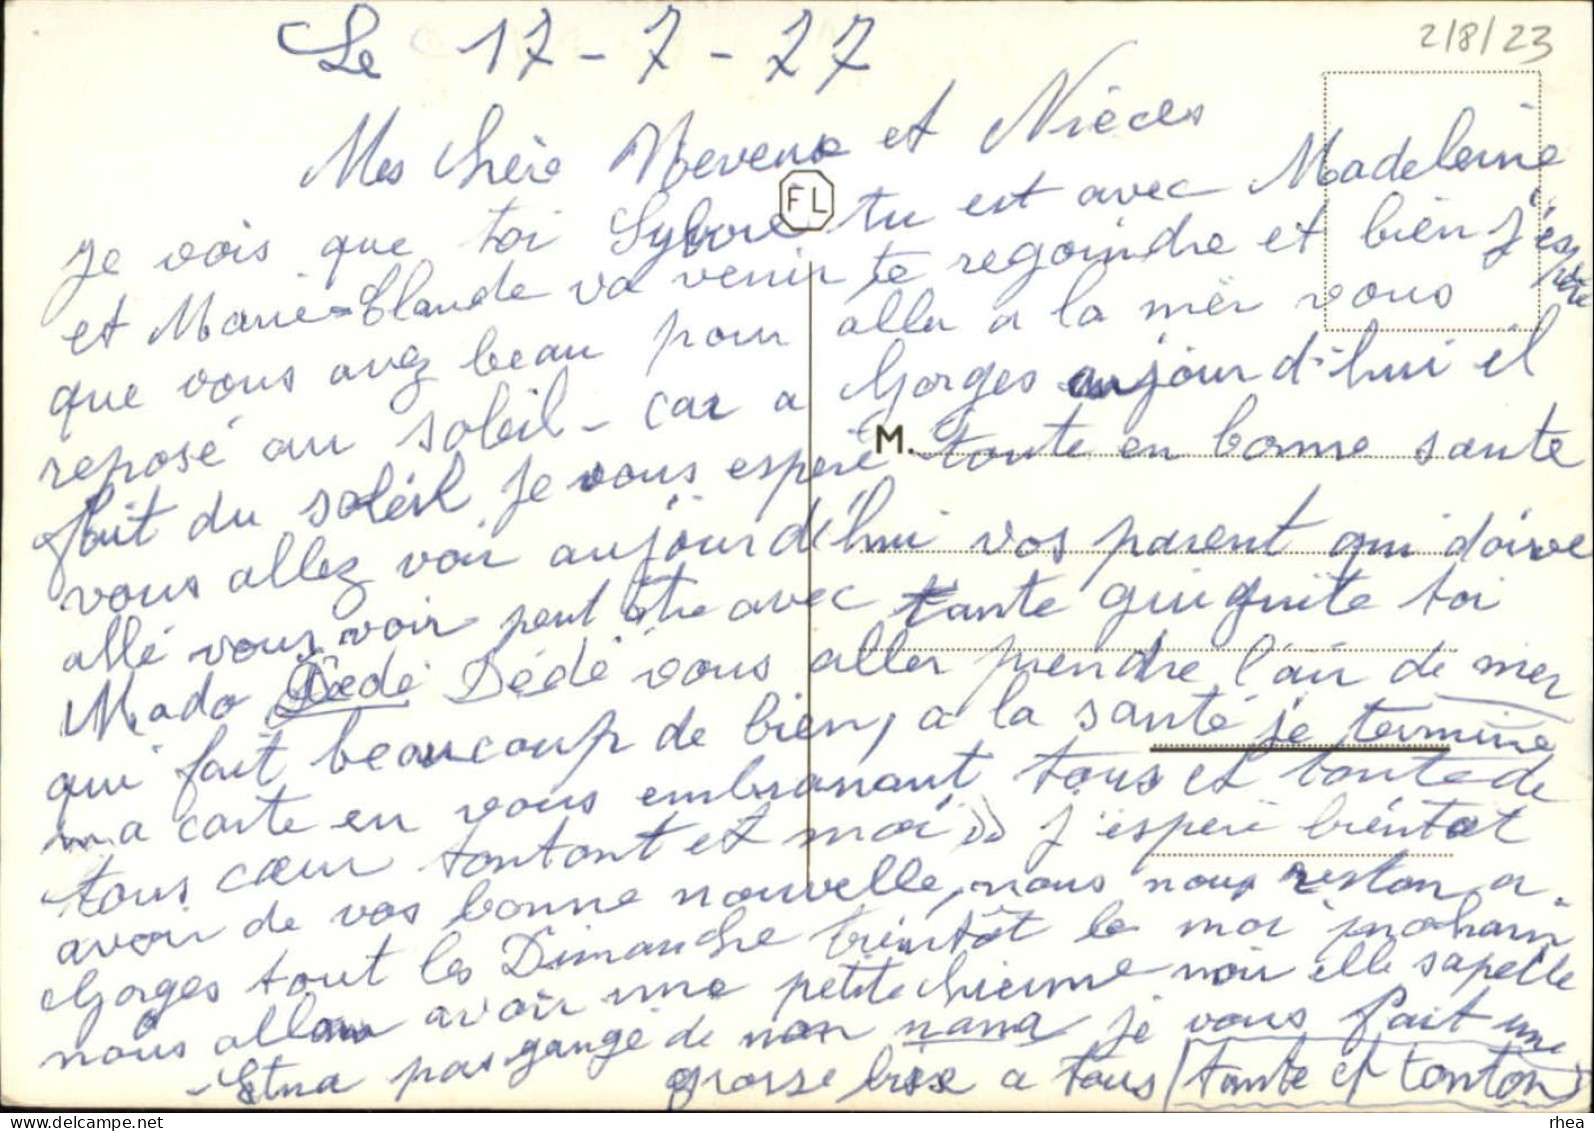 2/8/23
Le 17-7-77
Mes chère Neveux et Nièces
je vois que toi tu est avec Madeleine
et Marie-Claude va venir te regoindre et bien j'éspère
que vous avez beau pour aller a la mèr vous
reposé au soleil - car a Gorges aujourd'hui il
fait du soléil je vous espère toute en bonne sante
vous allez voir aujourd'hui vos parent qui doive
allé vous voir peut être avec tante guiguite toi
Mado Dédé Dédé vous aller prendre l'air de mer
qui fait beaucoup de bien, a la santé je termine
ma carte en vous embrassant tous et toute de
tous cœur tontont et moi j'espère bientot
avoir de vos bonne nouvelle, nous nous reston a
Gorges tout les Dimanche bientôt le moi prohain
nous allon avoir une petite chienne noir elle sapelle
- Etna pas gangé de non nana je vous fait une
grosse bise a tous (tante et tonton)
FL
M.
rhea